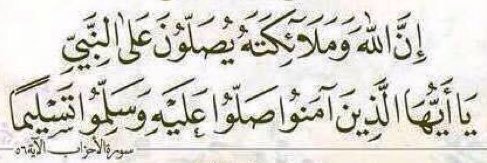 إِنَّ اللهَ وَمَلَائِكَتَهُ يُصَلُّونَ عَلَى النَّبِيِّ
يَا أَيُّهَا الَّذِينَ آمَنُوا صَلُّوا عَلَيْهِ وَسَلِّمُوا تَسْلِيمًا
سورة الأحزاب الآية ٥٦